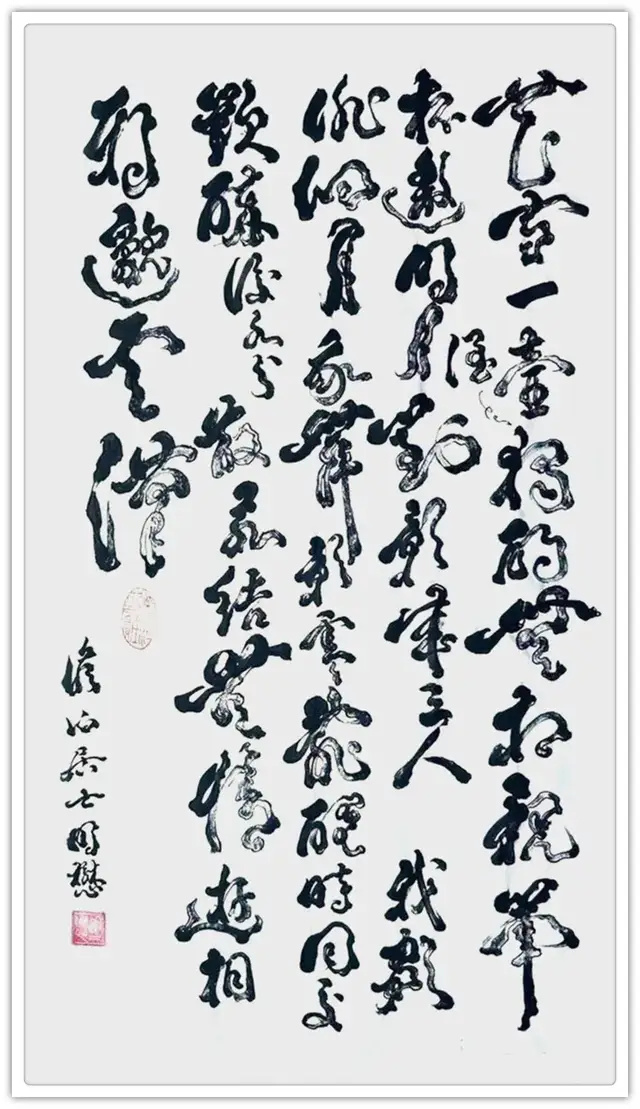 花一壺酒獨酌無相親舉
杯邀明月對影成三人我歌
徘徊月我舞影零亂醒時同交
歡醉後各分散永結無情遊相
期邈雲漢
泊居士時懋